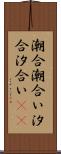 潮合潮合い汐
合汐合い